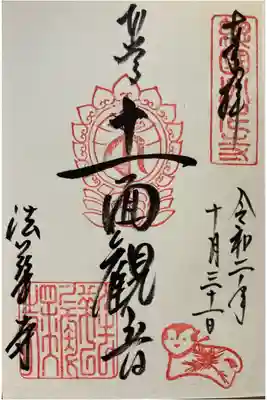 奉拝
令和二年
十月三十一日
本尊
十一面観音
法華寺